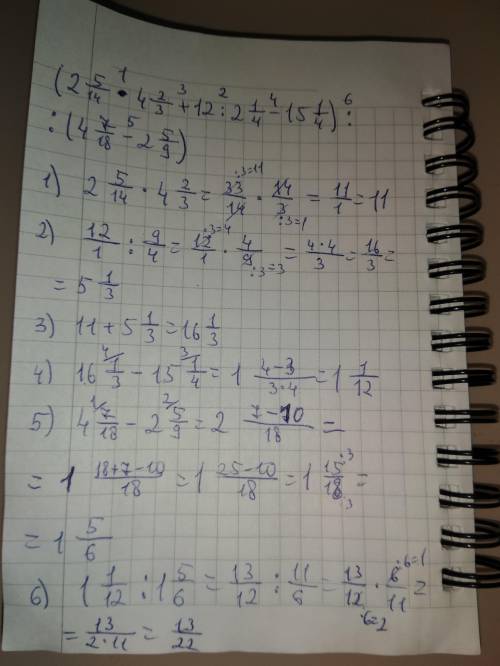 (2 5/14 · 4 2/3 + 12 : 2 1/4 - 15 1/4) :
1 3 2 4 6
: (4 7/18 - 2 5/9)
5
1) 2 5/14 · 4 2/3 = 33/14 · 14/3 = 11/1 = 11
:3=11 :3=1
2) 12/1 : 9/4 = 12/1 · 4/9 = 4·4/3 = 16/3 =
:3=4 :3=3
= 5 1/3
3) 11 + 5 1/3 = 16 1/3
4) 16 1/3 - 15 1/4 = 1 4-3/3·4 = 1 1/12
4/ 3/
5) 4 7/18 - 2 5/9 = 2 7-10/18 =
1/ 2/
= 1 18+7-10/18 = 1 25-10/18 = 1 15/18 =
:3 :3
= 1 5/6
6) 1 1/12 : 1 5/6 = 13/12 : 11/6 = 13/12 · 6/11 =
:6=1 :6=2
= 13/2·11 = 13/22